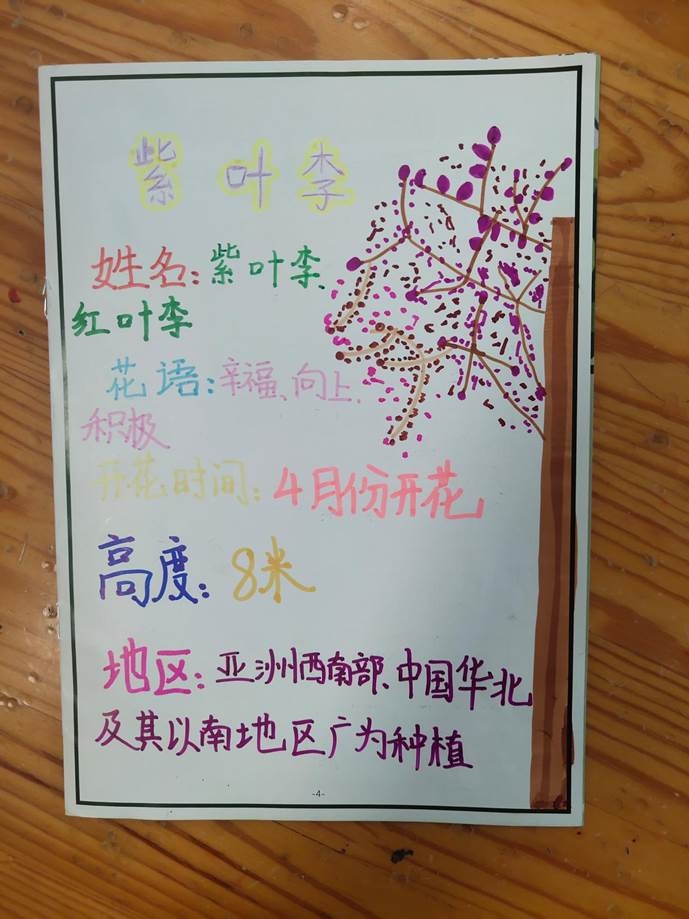 紫叶李
姓名：紫叶李、
红叶李
花语：辛福、向上、
积极
开花时间：4月份开花
高度：8米
地区：亚洲西南部、中国华北
及其以南地区广为种植
-4-